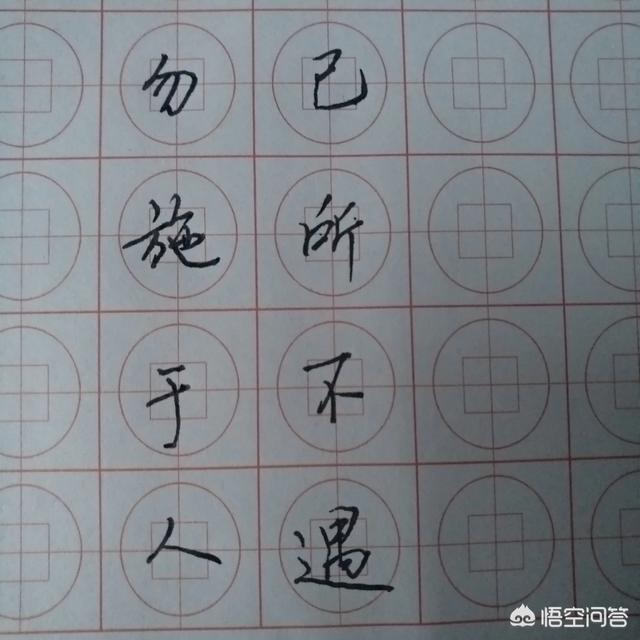 己所不遇
勿施于人
悟空问答